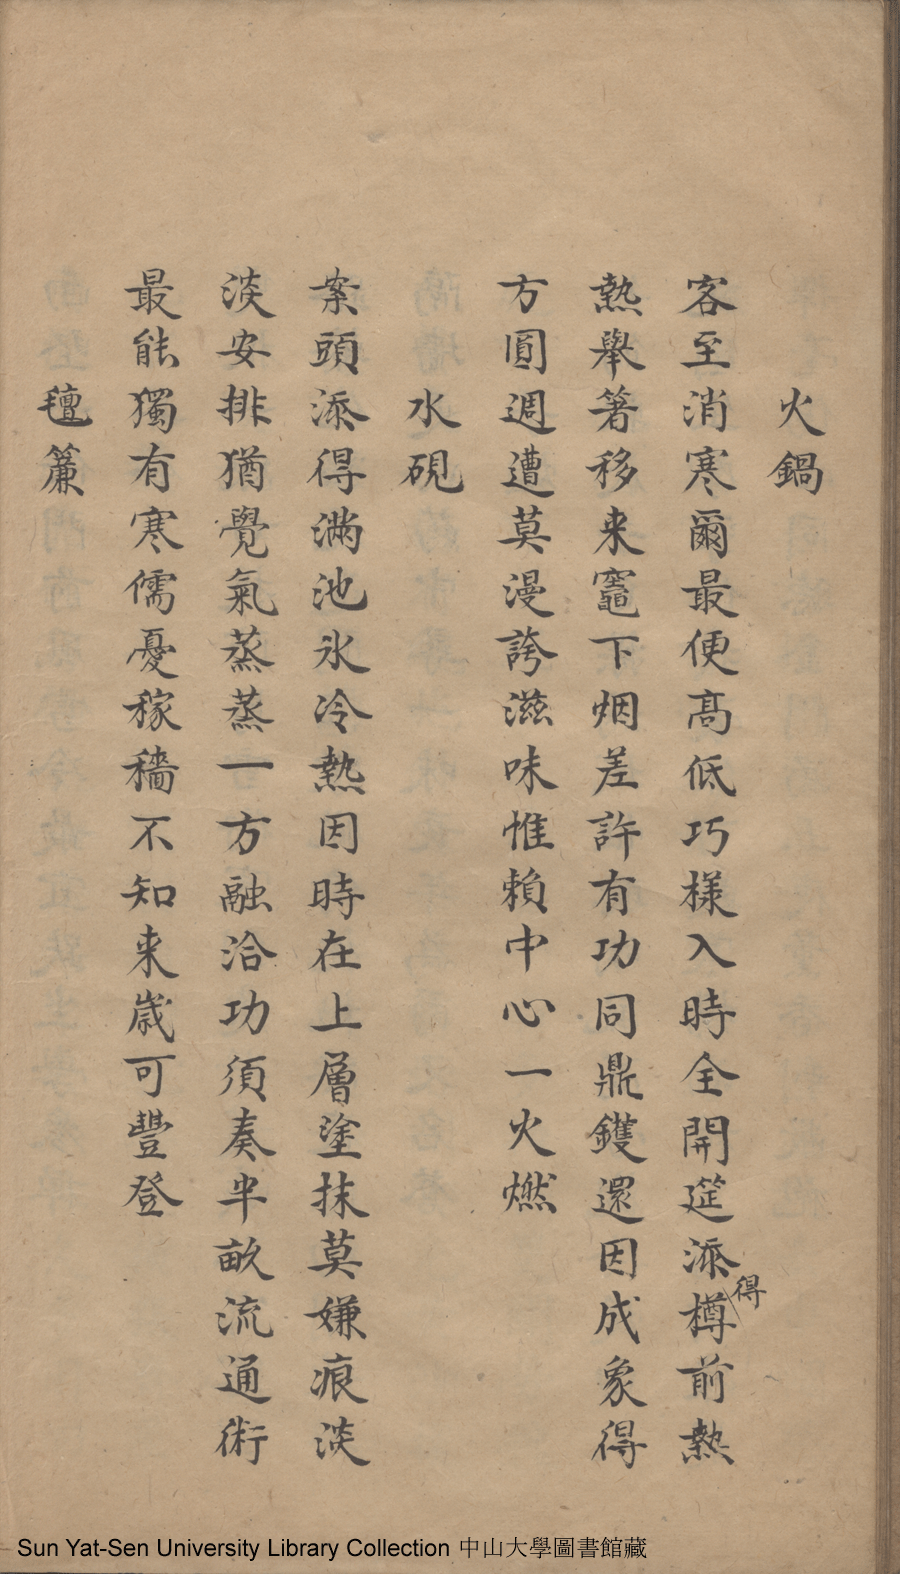 火鍋
客至消寒爾最便高低巧樣入時全開筵添得樽前熱
熱舉箸移来竈下烟差許有功同鼎鑊還因成象得
方圓週遭莫漫誇滋味惟賴中心一火燃
水硯
案頭添得滿池氷冷熱因時在上層塗抹莫嫌痕淡
淡安排猶覺氣蒸蒸一方融洽功須奏半畝流通術
最能獨有寒儒憂稼穡不知来歲可豐登
氊簾
Sun Yat-Sen University Library Collection 中山大學圖書館藏